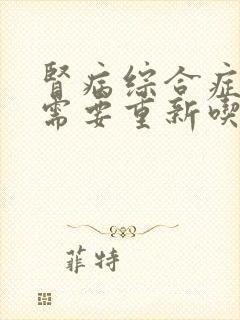 肾病综合症
需要重新喫
菲特